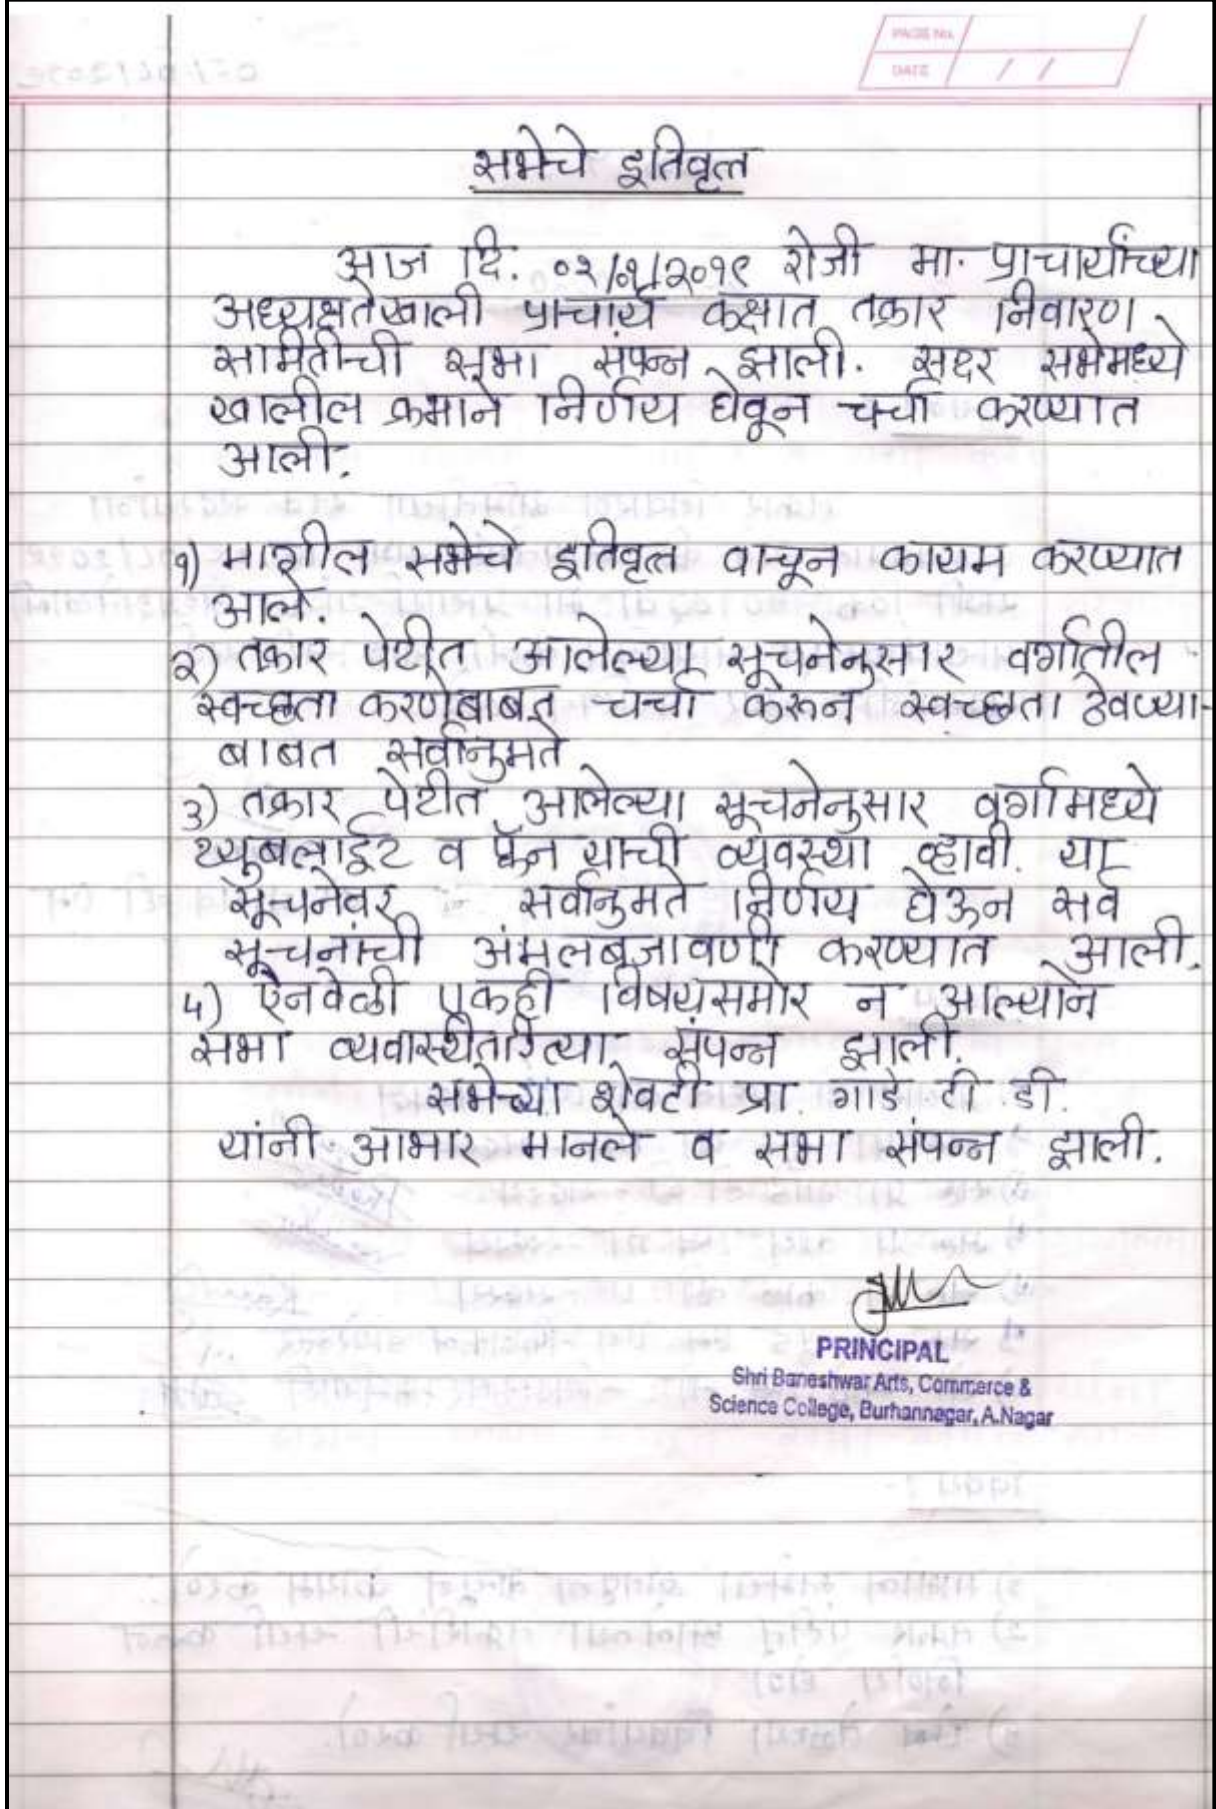 PAGE No.
DATE / /
सभेचे इतिवृत्त
आज दि. ०२/०१/२०१९ रोजी मा. प्राचार्यांच्या
अध्यक्षतेखाली प्राचार्य कक्षात तक्रार निवारण
समितीची सभा संपन्न झाली. सदर सभेमध्ये
खालील क्रमाने निर्णय घेवून चर्चा करण्यात
आली.
१) मागील सभेचे इतिवृत्त वाचून कायम करण्यात
आले.
२) तक्रार पेटीत आलेल्या सूचनेनुसार वर्गातील
स्वच्छता करणेबाबत चर्चा करून स्वच्छता ठेवण्या-
बाबत सर्वानुमते
3) तक्रार पेटीत आलेल्या सूचनेनुसार वर्गामध्ये
ट्युबलाईट व फॅन यांची व्यवस्था व्हावी. या
सूचनेवर सर्वानुमते निर्णय घेऊन सर्व
सूचनांची अंमलबजावणी करण्यात आली.
४) ऐनवेळी एकही विषयसमोर न आल्याने
सभा व्यवास्थीतरित्या संपन्न झाली.
सभेच्या शेवटी प्रा. गाडे टी. डी.
यांनी आभार मानले व सभा संपन्न झाली.
PRINCIPAL
Shri Baneshwar Arts, Commerce &
Science College, Burhannagar, A.Nagar